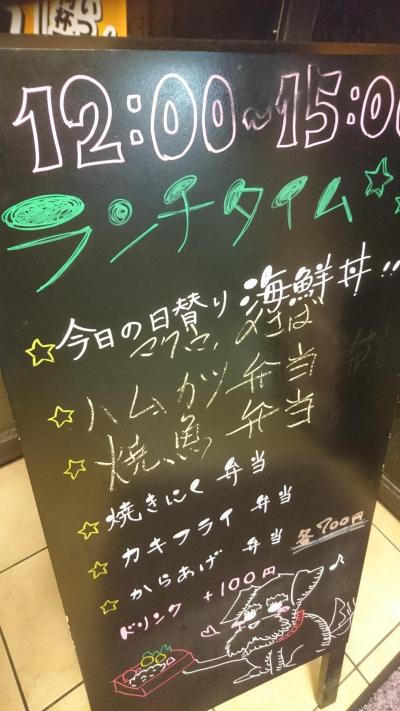 12:00~15:00
ランチタイム
今日の日替り 海鮮丼!!
マグロ、〆さば
ハムカツ弁当
焼魚 弁当
焼きにく 弁当
カキフライ 弁当
からあげ 弁当 各700円
ドリンク +100円